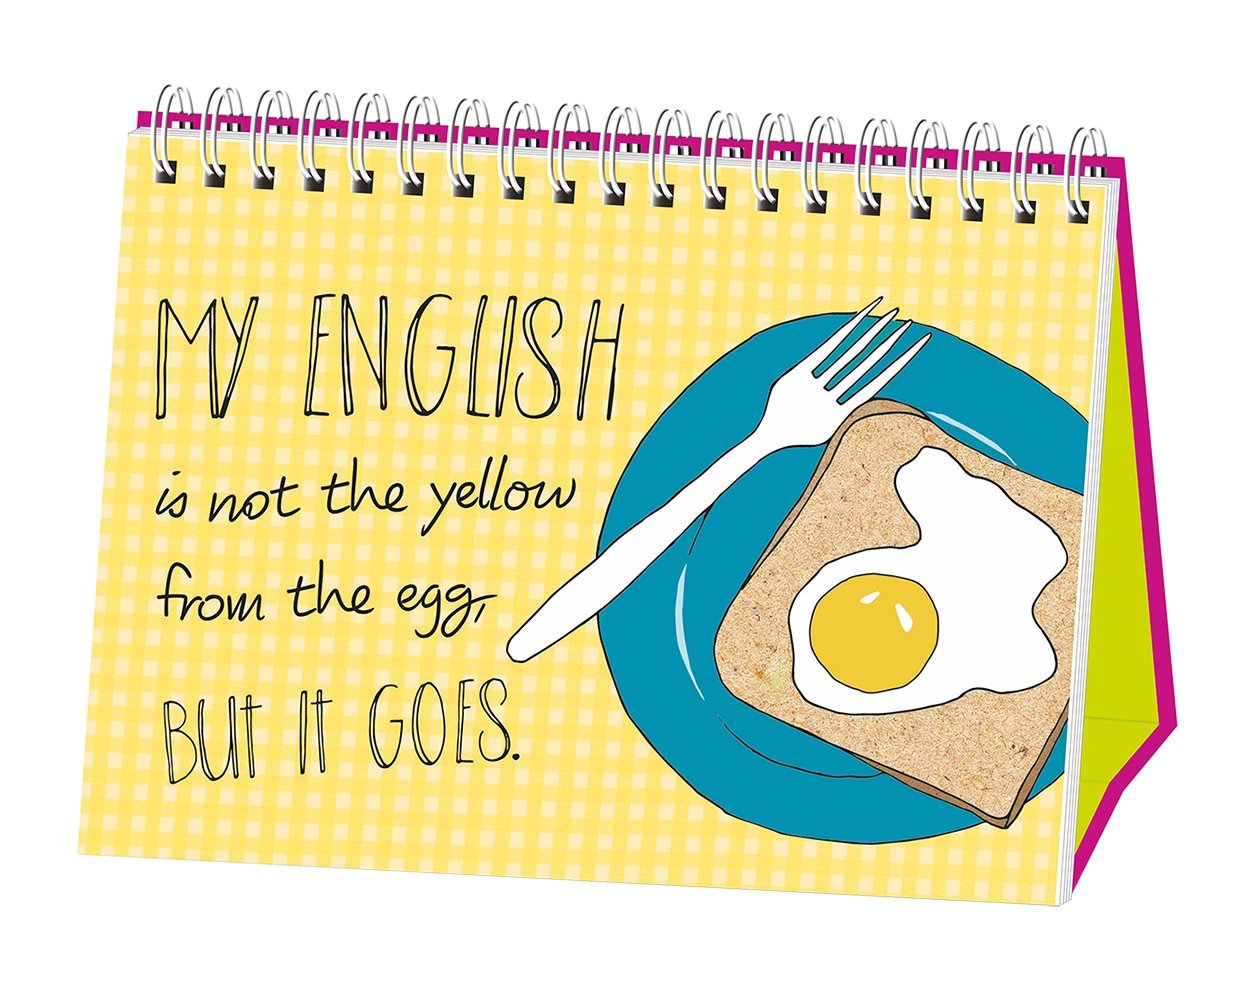 MY ENGLISH
is not the yellow
from the egg,
BUt It GOES.